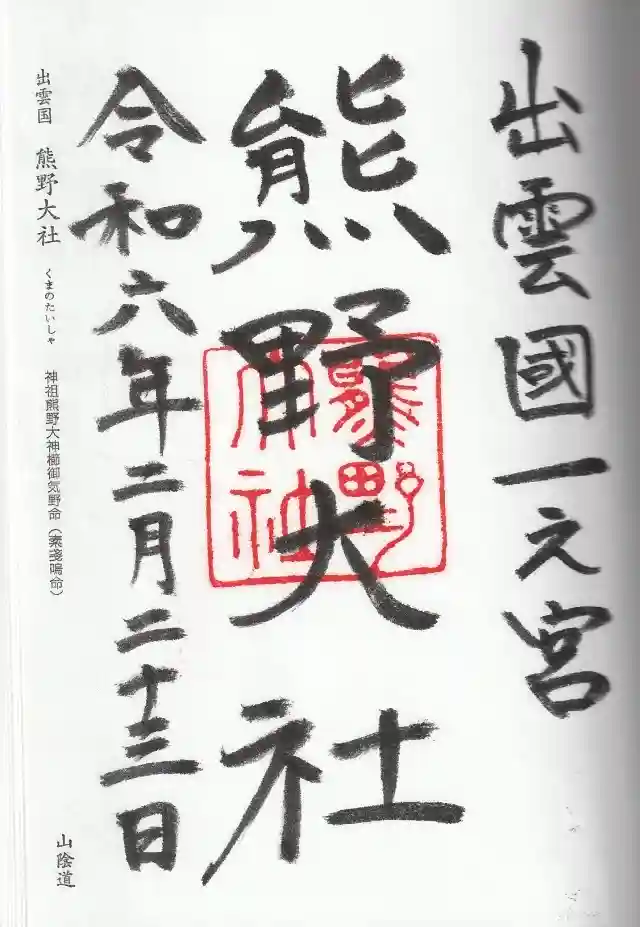 出雲國一之宮
熊野大社
熊野大社
令和六年二月二十三日
出雲国 熊野大社 くまのたいしゃ 神祖熊野大神櫛御気野命（素戔嗚命）
山陰道